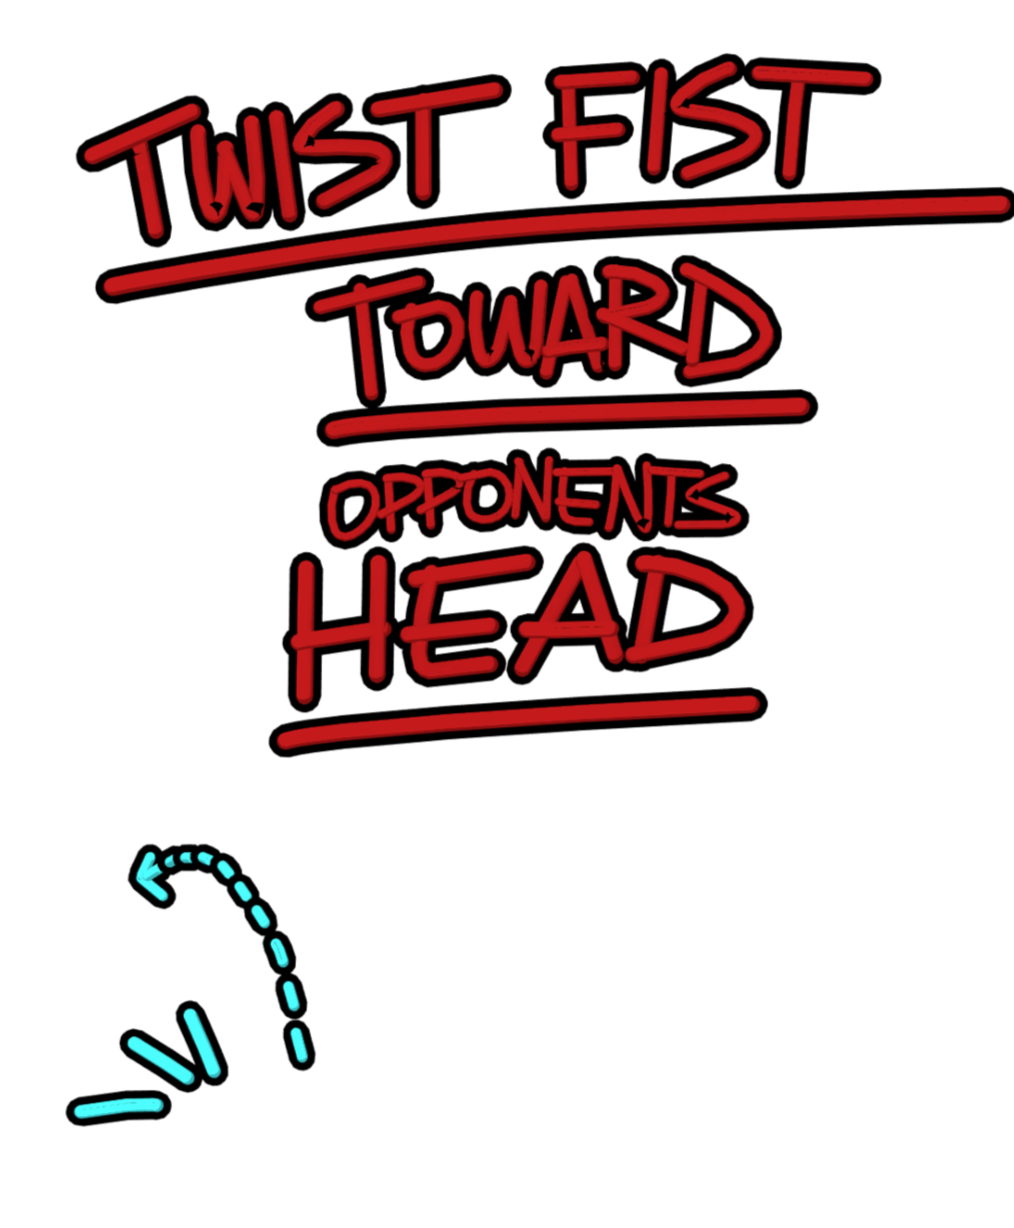 TWIST FIST
TOWARD
OPPONENTS
HEAD